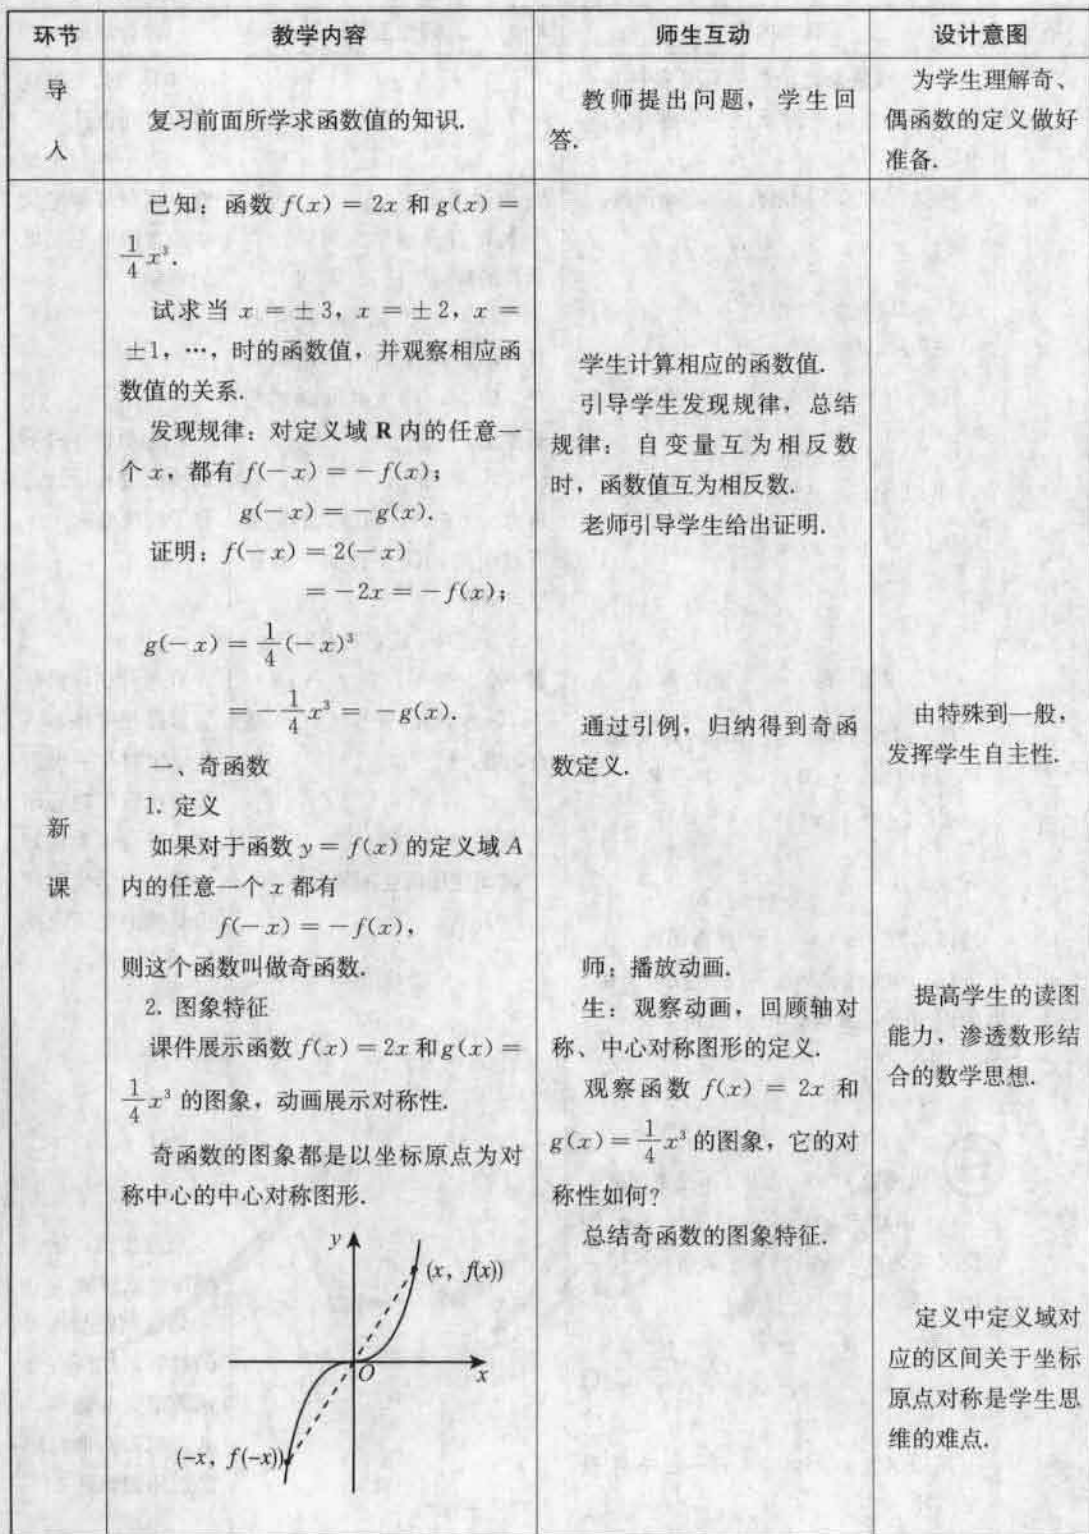 环节 教学内容 师生互动 设计意图
导
入
复习前面所学求函数值的知识.
教师提出问题，学生回
答.
为学生理解奇、
偶函数的定义做好
准备.
新
课
已知：函数 f(x) = 2x 和 g(x) =
\frac{1}{4}x³.
试求当 x = ±3，x = ±2，x =
±1，…，时的函数值，并观察相应函
数值的关系.
发现规律：对定义域 R 内的任意一
个 x，都有 f(-x) = -f(x)；
g(-x) = -g(x).
证明：f(-x) = 2(-x)
= -2x = -f(x)；
g(-x) = \frac{1}{4}(-x)³
= -\frac{1}{4}x³ = -g(x).
一、奇函数
1. 定义
如果对于函数 y = f(x) 的定义域 A
内的任意一个 x 都有
f(-x) = -f(x)，
则这个函数叫做奇函数.
2. 图象特征
课件展示函数 f(x) = 2x 和 g(x) =
\frac{1}{4}x³ 的图象，动画展示对称性.
奇函数的图象都是以坐标原点为对
称中心的中心对称图形.
y
(x，f(x))
O
x
(-x，f(-x))
学生计算相应的函数值.
引导学生发现规律，总结
规律：自变量互为相反数
时，函数值互为相反数.
老师引导学生给出证明.
通过引例，归纳得到奇函
数定义.
师：播放动画.
生：观察动画，回顾轴对
称、中心对称图形的定义.
观察函数 f(x) = 2x 和
g(x) = \frac{1}{4}x³ 的图象，它的对
称性如何？
总结奇函数的图象特征.
由特殊到一般，
发挥学生自主性.
提高学生的读图
能力，渗透数形结
合的数学思想.
定义中定义域对
应的区间关于坐标
原点对称是学生思
维的难点.